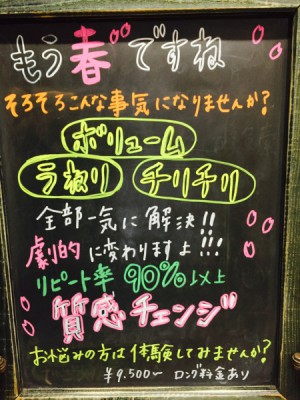 もう春ですね
そろそろこんな事気になりませんか?
ボリューム
うねり チリチリ
全部一気に解決!!
劇的に変わりますよ!!!
リピート率90%以上
質感チェンジ
お悩みの方は体験してみませんか?
¥9,500〜 ロング料金あり